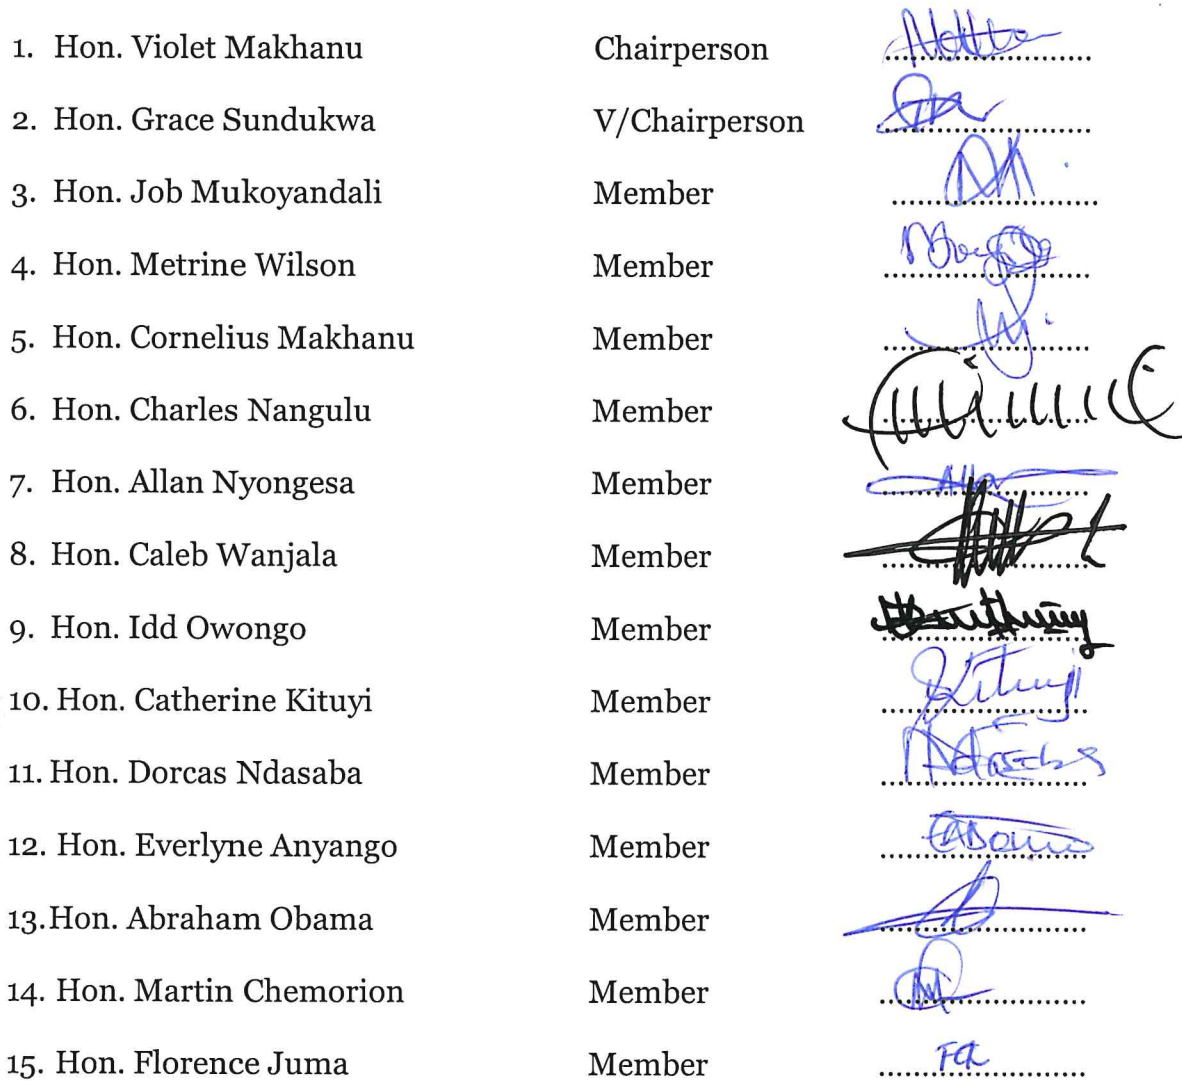 1. Hon. Violet Makhanu Chairperson
2. Hon. Grace Sundukwa V/Chairperson
3. Hon. Job Mukoyandali Member
4. Hon. Metrine Wilson Member
5. Hon. Cornelius Makhanu Member
6. Hon. Charles Nangulu Member
7. Hon. Allan Nyongesa Member
8. Hon. Caleb Wanjala Member
9. Hon. Idd Owongo Member
10. Hon. Catherine Kituyi Member Kituyi
11. Hon. Dorcas Ndasaba Member
12. Hon. Everlyne Anyango Member
13. Hon. Abraham Obama Member
14. Hon. Martin Chemorion Member
15. Hon. Florence Juma Member